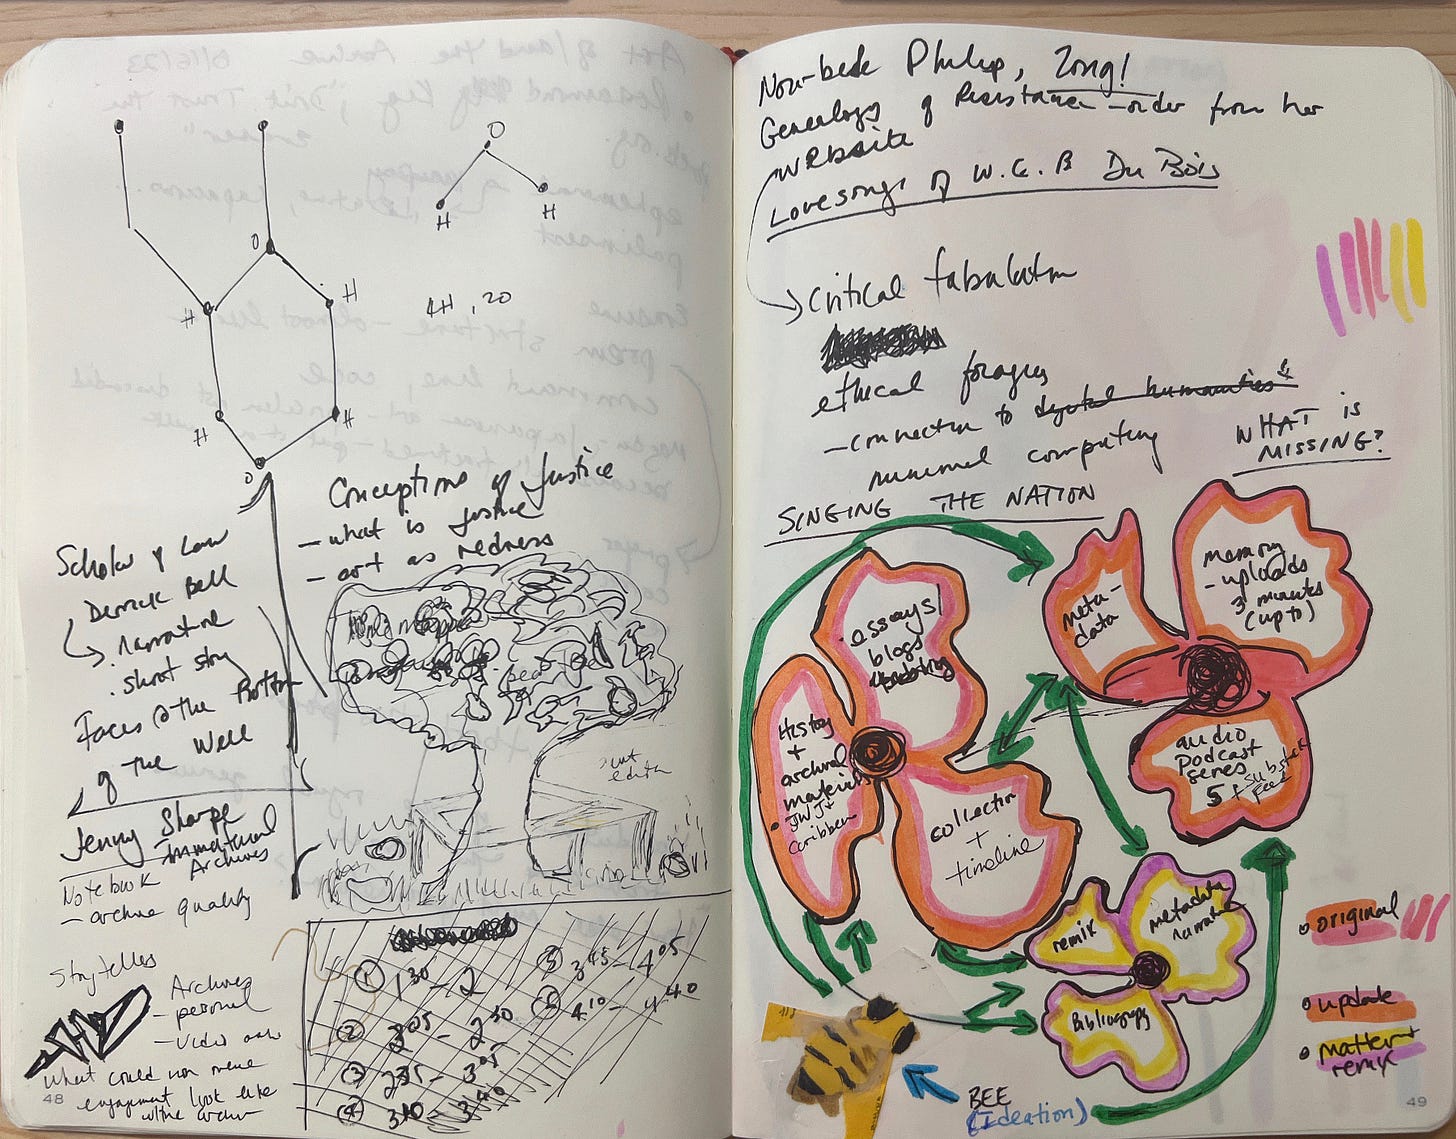 O
H
H
O
H
H
H
H
O
4H, 2O
Conceptions of Justice
- what is justice
- art as redress
Scholar of Law
Derrick Bell
. narrative
. short story
Faces @ the Bottom
of the Well
Jenny Sharpe
Immaterial
Archives
Notebook
- archive quality
Storytellers
Archives
- personal
- video
what could non
engagement look like
w/the archive
① 1:30 - 2
② 2:05 - 2:30
③ 2:35 - 3:05
④ 3:10 - 3:40
⑤ 3:45 - 4:05
⑥ 4:10 - 4:40
48
Philip, Zong!
Genealogy of Resistance - order from her
website
Lovesongs of W.E.B Du Bois
Critical fabulation
ethical forages
- connection to digital humanities
minimal computing
WHAT is
MISSING?
SINGING THE NATION
essays/
blogs
History
+
archival
materials
• JWJ +
Caribbean
collection
+
timeline
meta-
data
memory
- uploads
3 minutes
(up to)
audio
podcast
series
5 + Substack
Feed
remix
metadata
narrative
Bibliography
• original
• update
• matter +
remix
BEE
(Ideation)
49